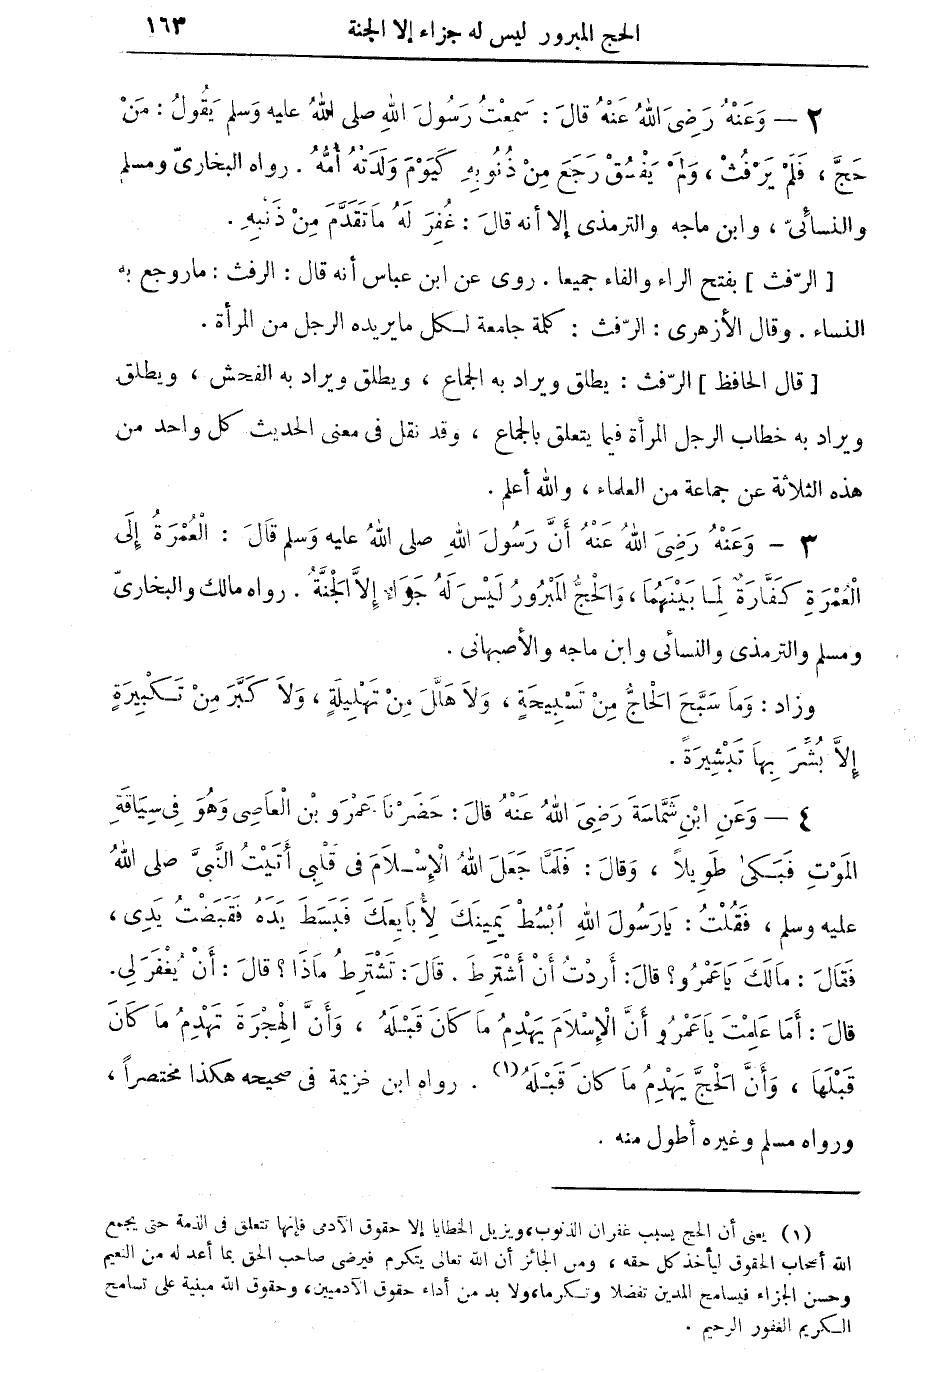 الحج المبرور ليس له جزاء إلا الجنة ١٦٣
٢ — وَعَنْهُ رَضِىَ اللهُ عَنْهُ قالَ : سَمِعْتُ رَسُولَ اللهِ صلى اللهُ عليه وَسلم يَقُولُ : مَنْ
حَجَّ ، فَلَمْ يَرْفُثْ ، وَلَمْ يَفْسُقْ رَجَعَ مِنْ ذُنُوبِهِ كَيَوْمَ وَلَدَتْهُ أُمُّهُ . رواه البخارىّ ومسلم
والنسائىّ ، وابن ماجه والترمذى إلا أنه قالَ : غُفِرَ لَهُ مَا تَقَدَّمَ مِنْ ذَنْبِهِ .
[ الرّفث ] بفتح الراء والفاء جميعا . روى عن ابن عباس أنه قال : الرفث : ماروجع به
النساء . وقال الأزهرى : الرّفث : كلمة جامعة لكل مايريده الرجل من المرأة .
[ قال الحافظ ] الرّفث : يطلق ويراد به الجماع ، ويطلق ويراد به الفحش ، ويطلق
ويراد به خطاب الرجل المرأة فيما يتعلق بالجماع ، وقد نقل فى معنى الحديث كل واحد من
هذه الثلاثة عن جماعة من العلماء ، والله أعلم .
٣ — وَعَنْهُ رَضِىَ اللهُ عَنْهُ أَنَّ رَسُولَ اللهِ صلى اللهُ عليه وَسلم قَالَ : الْعُمْرَةُ إِلَى
الْعُمْرَةِ كَفَّارَةٌ لِمَا بَيْنَهُمَا ، وَالحَجُّ المَبْرُورُ لَيْسَ لَهُ جَزَاءٌ إِلاَّ الجَنَّةُ . رواه مالك والبخارىّ
ومسلم والترمذى والنسائى وابن ماجه والأصبهانى .
وزاد : وَمَا سَبَّحَ الحَاجُّ مِنْ تَسْبِيحَةٍ ، وَلاَ هَلَّلَ مِنْ تَهْلِيلَةٍ ، وَلاَ كَبَّرَ مِنْ تَكْبِيرَةٍ
إِلاَّ بُشِّرَ بِهَا تَبْشِيرَةً .
٤ — وَعَنِ ابْنِ شَمَّاسَةَ رَضِىَ اللهُ عَنْهُ قالَ : حَضَرْنَا عَمْرَو بْنَ الْعَاصِى وَهُوَ فِى سِيَاقَةِ
المَوْتِ فَبَكَىٰ طَوِيلاً ، وَقالَ : فَلَمَّا جَعَلَ اللهُ الْإِسْلَامَ فى قَلْبِى أَتَيْتُ النَّبِىَّ صلى اللهُ
عليه وسلم ، فَقُلْتُ : يَارَسُولَ اللهِ ابْسُطْ يَمِينَكَ لِأُبَايِعَكَ فَبَسَطَ يَدَهُ فَقَبَضْتُ يَدِى ،
فَقَالَ : مَالَكَ يَاعَمْرُو ؟ قالَ : أَردْتُ أَنْ أَشْتَرِطَ . قَالَ : تَشْتَرِطُ مَاذَا ؟ قالَ : أَنْ يُغْفَرَ لِى .
قالَ : أَمَا عَلِمْتَ يَاعَمْرُو أَنَّ الْإِسْلاَمَ يَهْدِمُ مَا كَانَ قَبْلَهُ ، وَأَنَّ الْهِجْرَةَ تَهْدِمُ مَا كَانَ
قَبْلَهَا ، وَأَنَّ الحَجَّ يَهْدِمُ مَا كانَ قَبْلَهُ (١) . رواه ابن خزيمة فى صحيحه هكذا مختصراً ،
ورواه مسلم وغيره أطول منه .
(١) يعنى أن الحج يسبب غفران الذنوب، ويزيل الخطايا إلا حقوق الآدمى فإنها تتعلق فى الذمة حتى يجمع
الله أصحاب الحقوق ليأخذ كل حقه ، ومن الجائز أن الله تعالى يتكرم فيرضى صاحب الحق بما أعد له من النعيم
وحسن الجزاء فيسامح المدين تفضلا وتكرما، ولا بد من أداء حقوق الآدميين، وحقوق الله مبنية على تسامح
الكريم الغفور الرحيم .